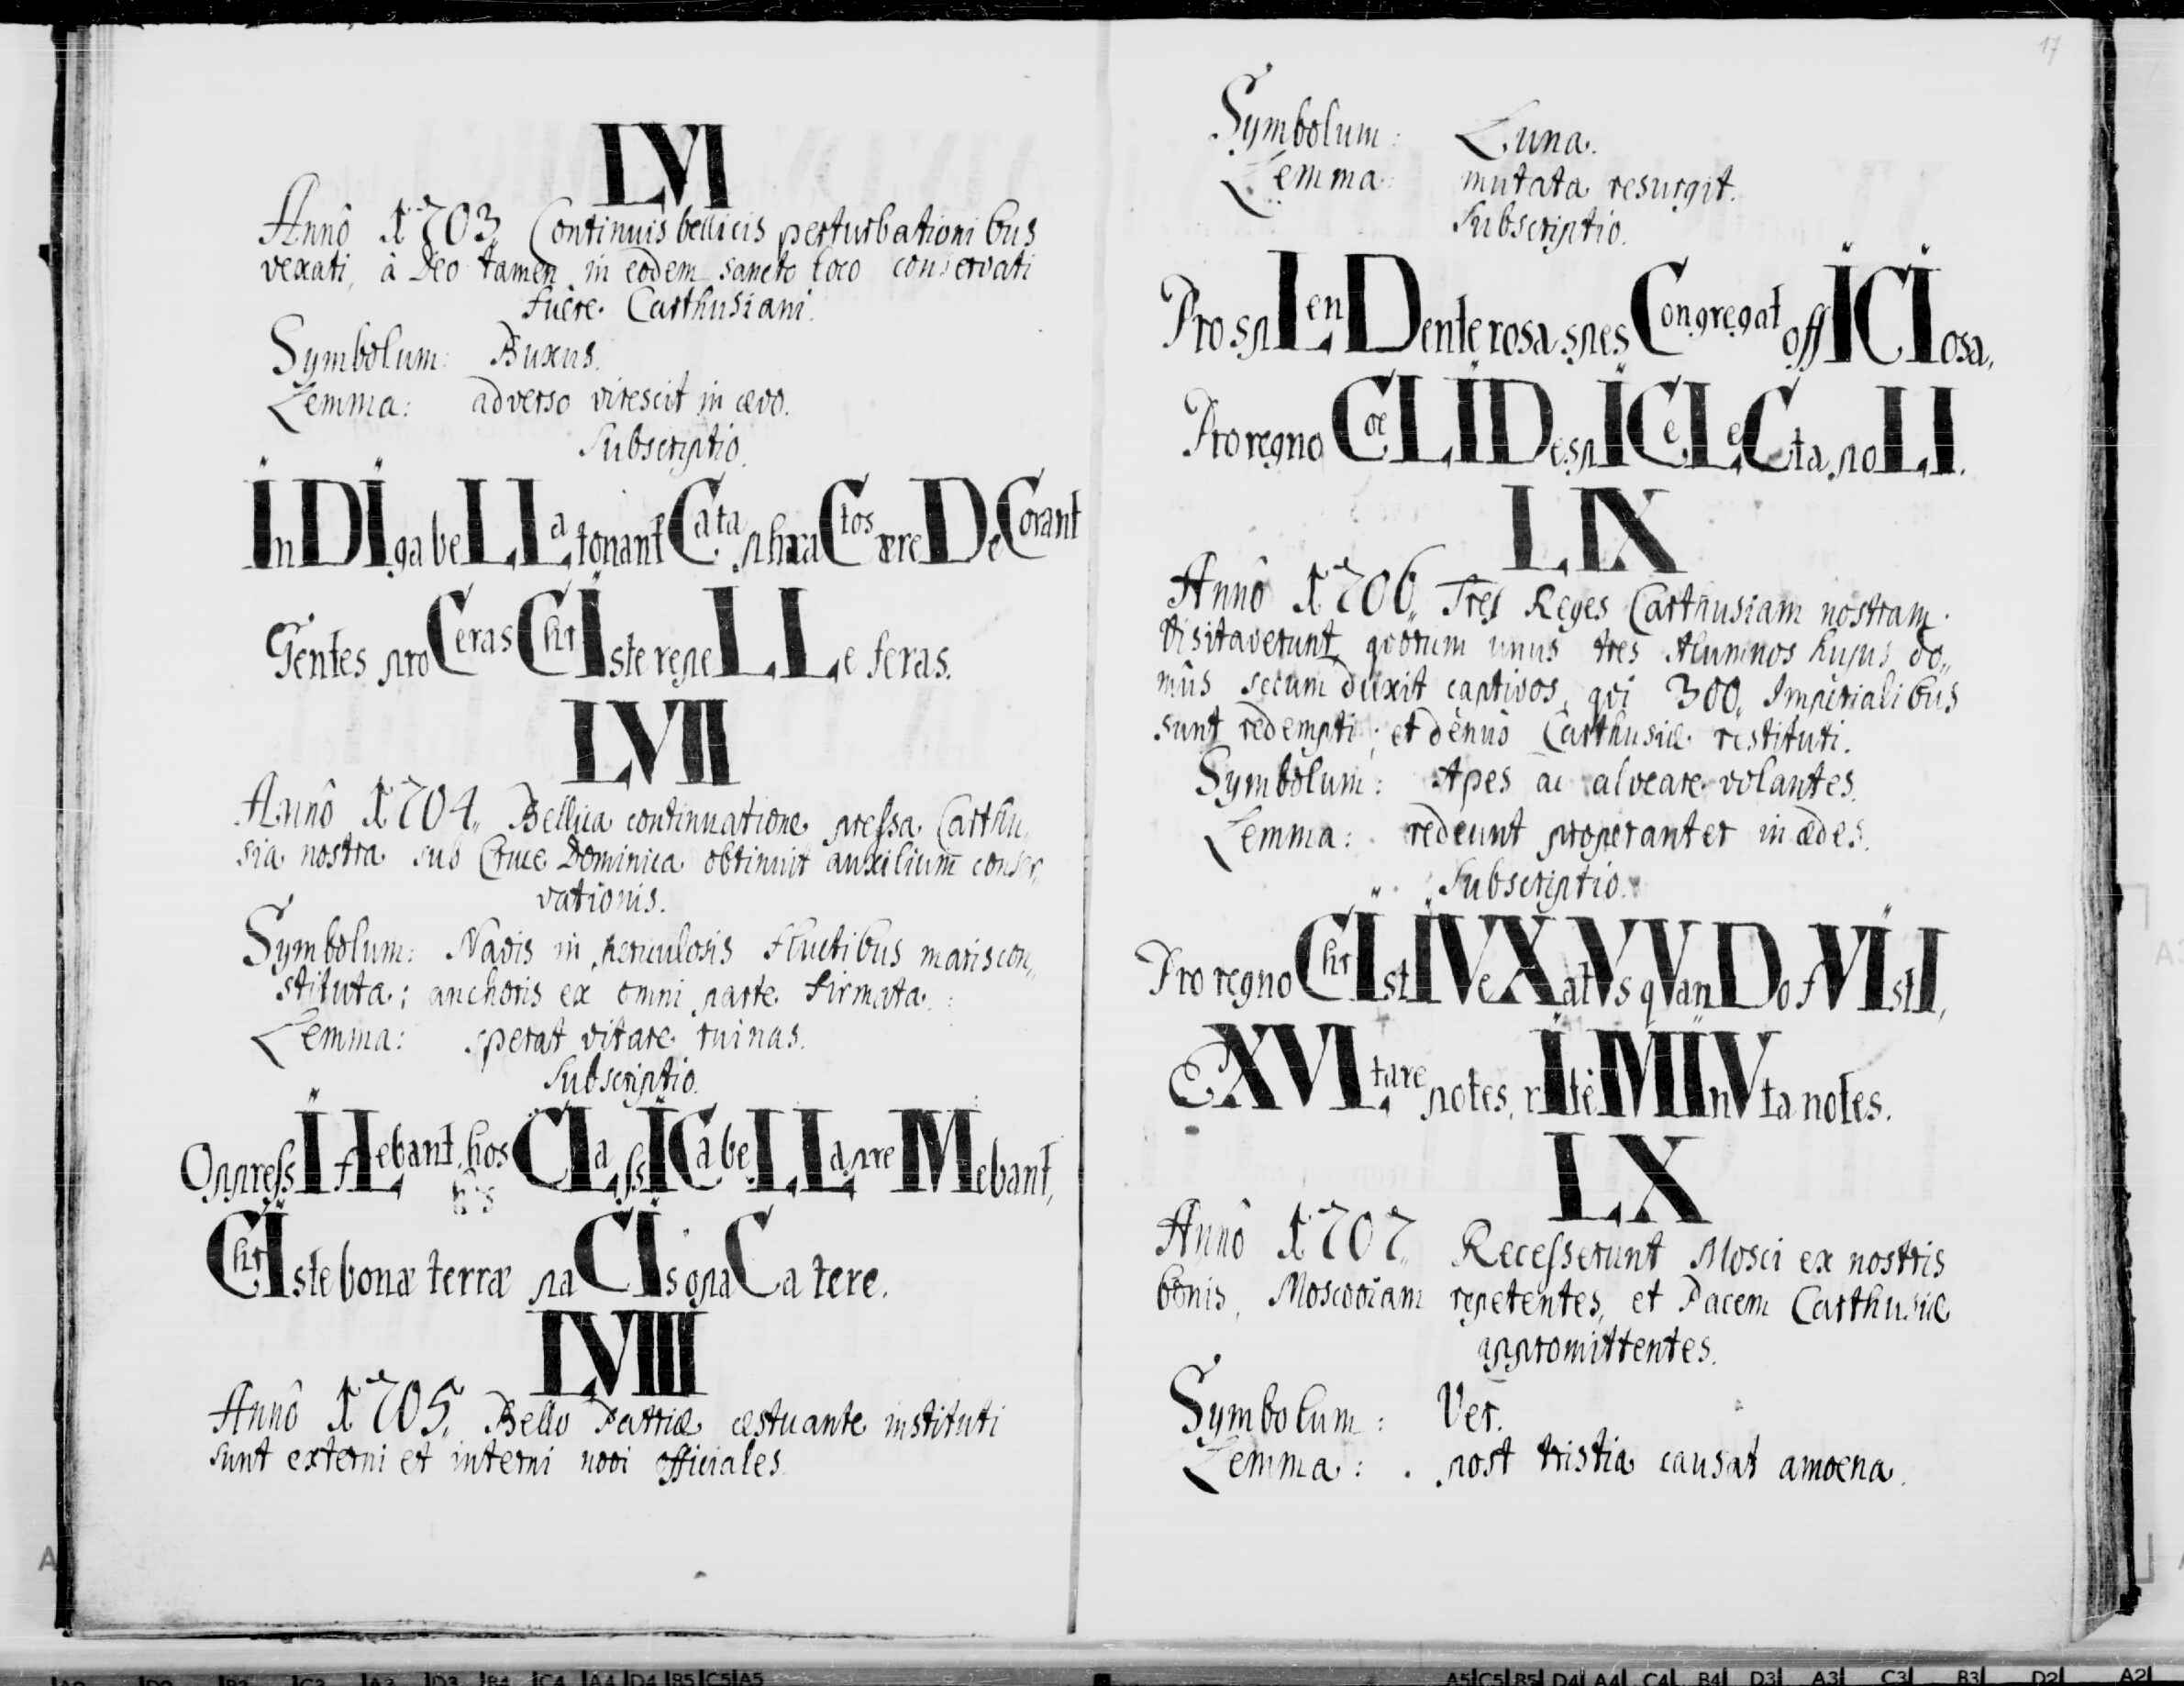 LVI
Annô 1703. Continuis bellicis perturbationibus
vexati, à Deo tamen in eodem sancto loco conservati
fuêre Carthusiani.
Symbolum: Buxus.
Lemma: adverso virescit in ævo.
Subscriptio.
InDIgabeLLatonantCataphraCtosæreDeCorant
Gentes proCerasChrIste repeLLe feras.
LVII
Annô 1704. Bellica continuatione pressa Carthu„
sia nostra sub Cruce Dominica obtinuit auxilium conser„
vationis.
Symbolum: Navis in periculosis Fluctibus maris con„
stituta; anchoris ex omni parte firmata.
Lemma: sperat vitare ruinas.
Subscriptio.
OppressI fLebant, hos CLassICa beLLa preMebant,
ChrIste bonæ terræ paCIs opaCa tere.
LVIII
Annô 1705. Bello Patriæ æstuante instituti
sunt externi et interni novi officiales.
17
Symbolum: Luna.
Lemma: mutata resurgit.
Subscriptio.
Pro spLenDente rosa spes Congregat offICIosa,
Pro regno CoeLI DespICe LeCta poLI.
LIX
Annô 1706. Tres Reges Carthusiam nostram
visitaverunt, qvorum unus tres Alumnos hujus do„
mûs secum duxit captivos, qvi 300. Imperialibus
sunt redempti; et denuò Carthusiæ restituti.
Symbolum: Apes ac alveare volantes.
Lemma: redeunt properanter in ædes.
Subscriptio.
Pro regno ChrIstI IVeXatVs qVanDo fVIstI,
EXVItare potes, rItè IMInVta notes.
LX
Annô 1707. Recesserunt Mosci ex nostris
bonis, Moscoviam repetentes, et Pacem Carthusiæ
appromittentes.
Symbolum: Ver.
Lemma: post tristia causat amoena.